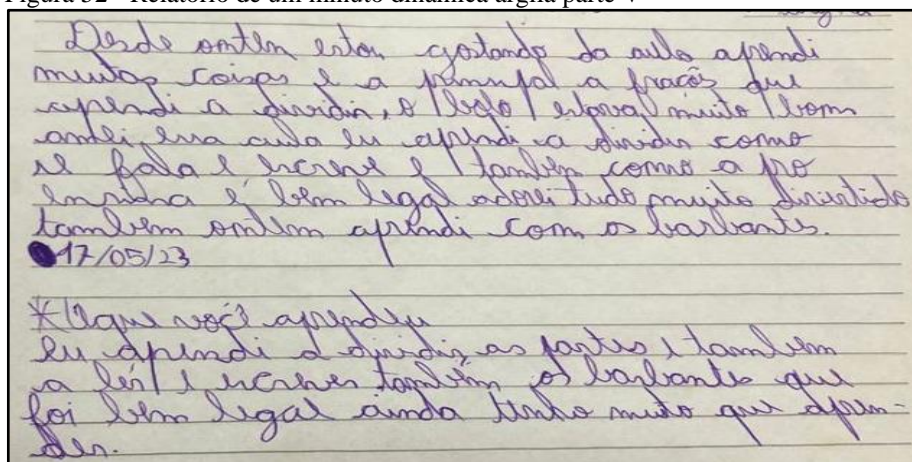 Figura 32 - Relatório de um minuto dinâmica argila parte V
Desde ontem estou gostando da aula aprendi
muitas coisas e a principal a fração que
aprendi a dividir, o bolo estava muito bom
amei essa aula eu aprendi a dividir como
se fala e escreve e também como a pro
ensina é bem legal adorei tudo muito divertido
também ontem aprendi com os barbante.
17/05/23
* O que você aprendeu
eu aprendi a dividir as partes e também
a ler e escrever também os barbante que
foi bem legal ainda tenho muto que apren-
der.